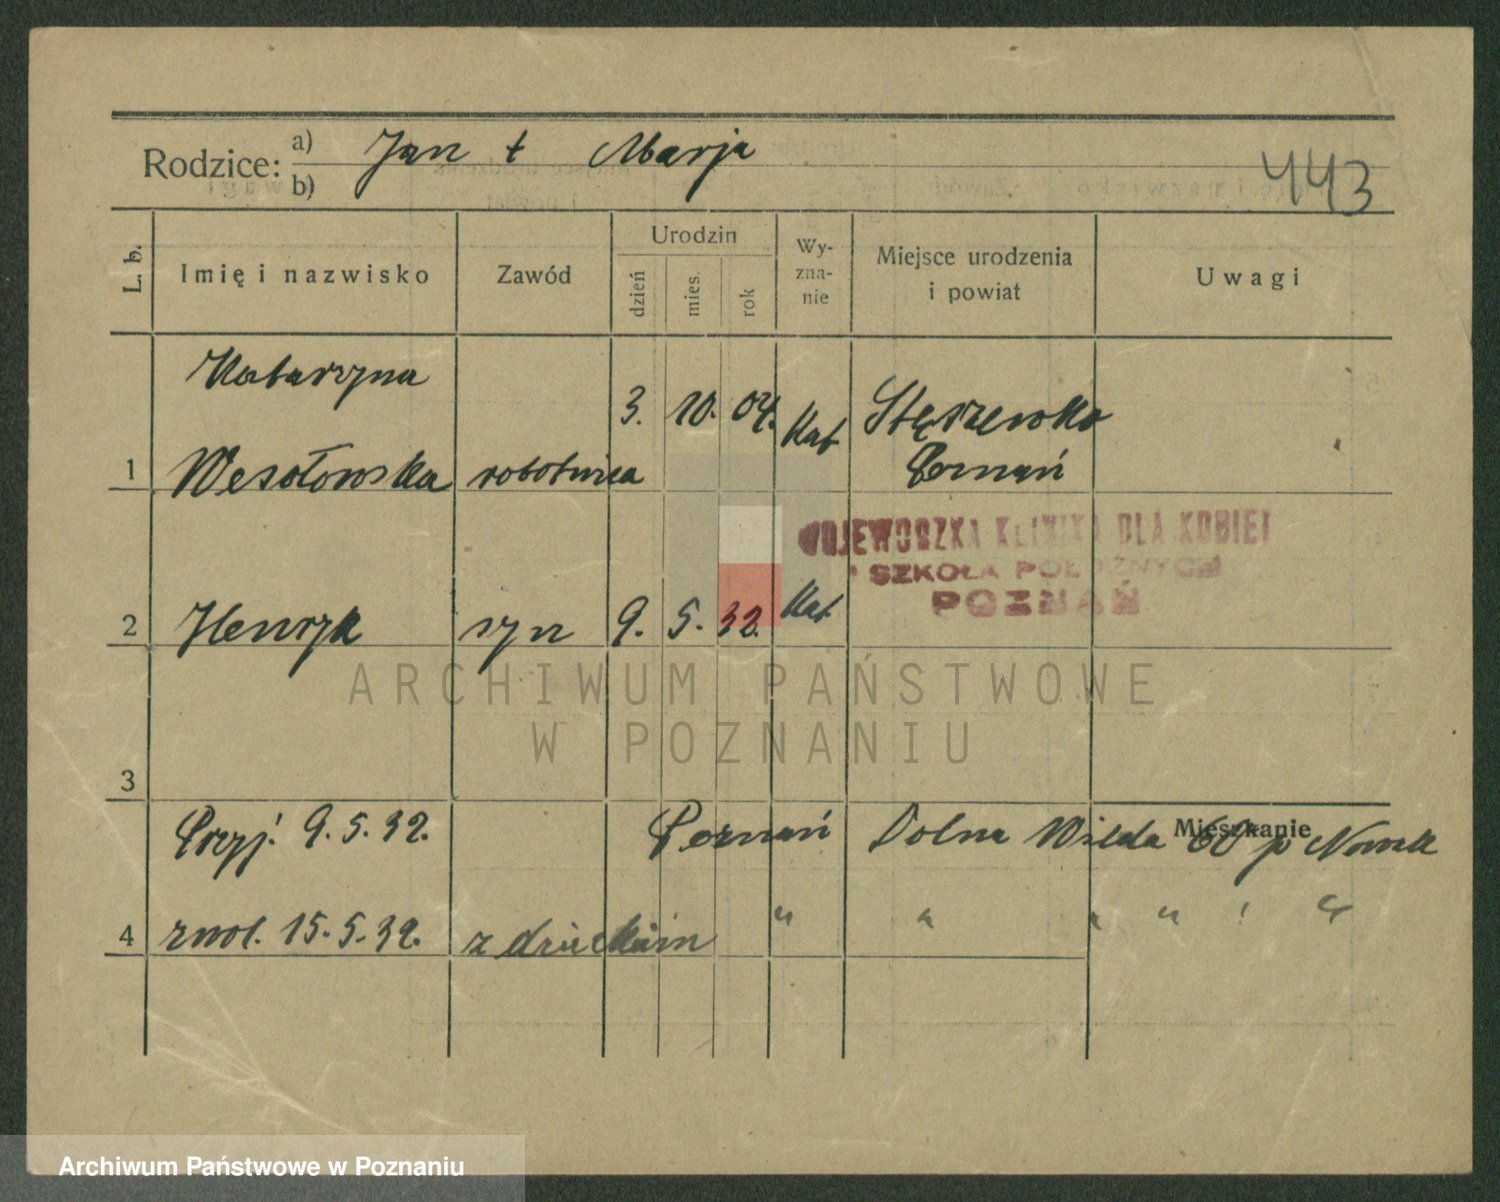 Rodzice: a) Jan + Marja
b)
443
L. b. Imię i nazwisko Zawód Urodzin dzień mies. rok Wy-zna-nie Miejsce urodzenia i powiat Uwagi
Katarzyna
3. 10. 04. Kat Stęszewko
1 Wesołowska robotnica Poznań
WOJEWÓDZKA KLINIKA DLA KOBIET
SZKOŁA POŁOŻNYCH
POZNAŃ
2 Henryk syn 9. 5. 32. Kat
ARCHIWUM PAŃSTWOWE
W POZNANIU
3
Mieszkanie
Przyj. 9. 5. 32. Poznań Dolna Wilda 60 p Nowak
4 zwol. 15. 5. 32. z dzieckiem " " " " " "
Archiwum Państwowe w Poznaniu